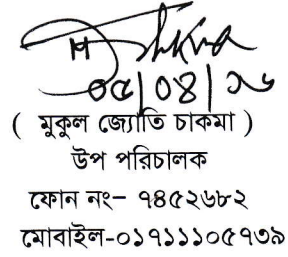 ০৫/০৪/১৬
( মুকুল জ্যোতি চাকমা )
উপ পরিচালক
ফোন নং– ৭৪৫২৬৮২
মোবাইল-০১৭১১১০৫৭৩৯